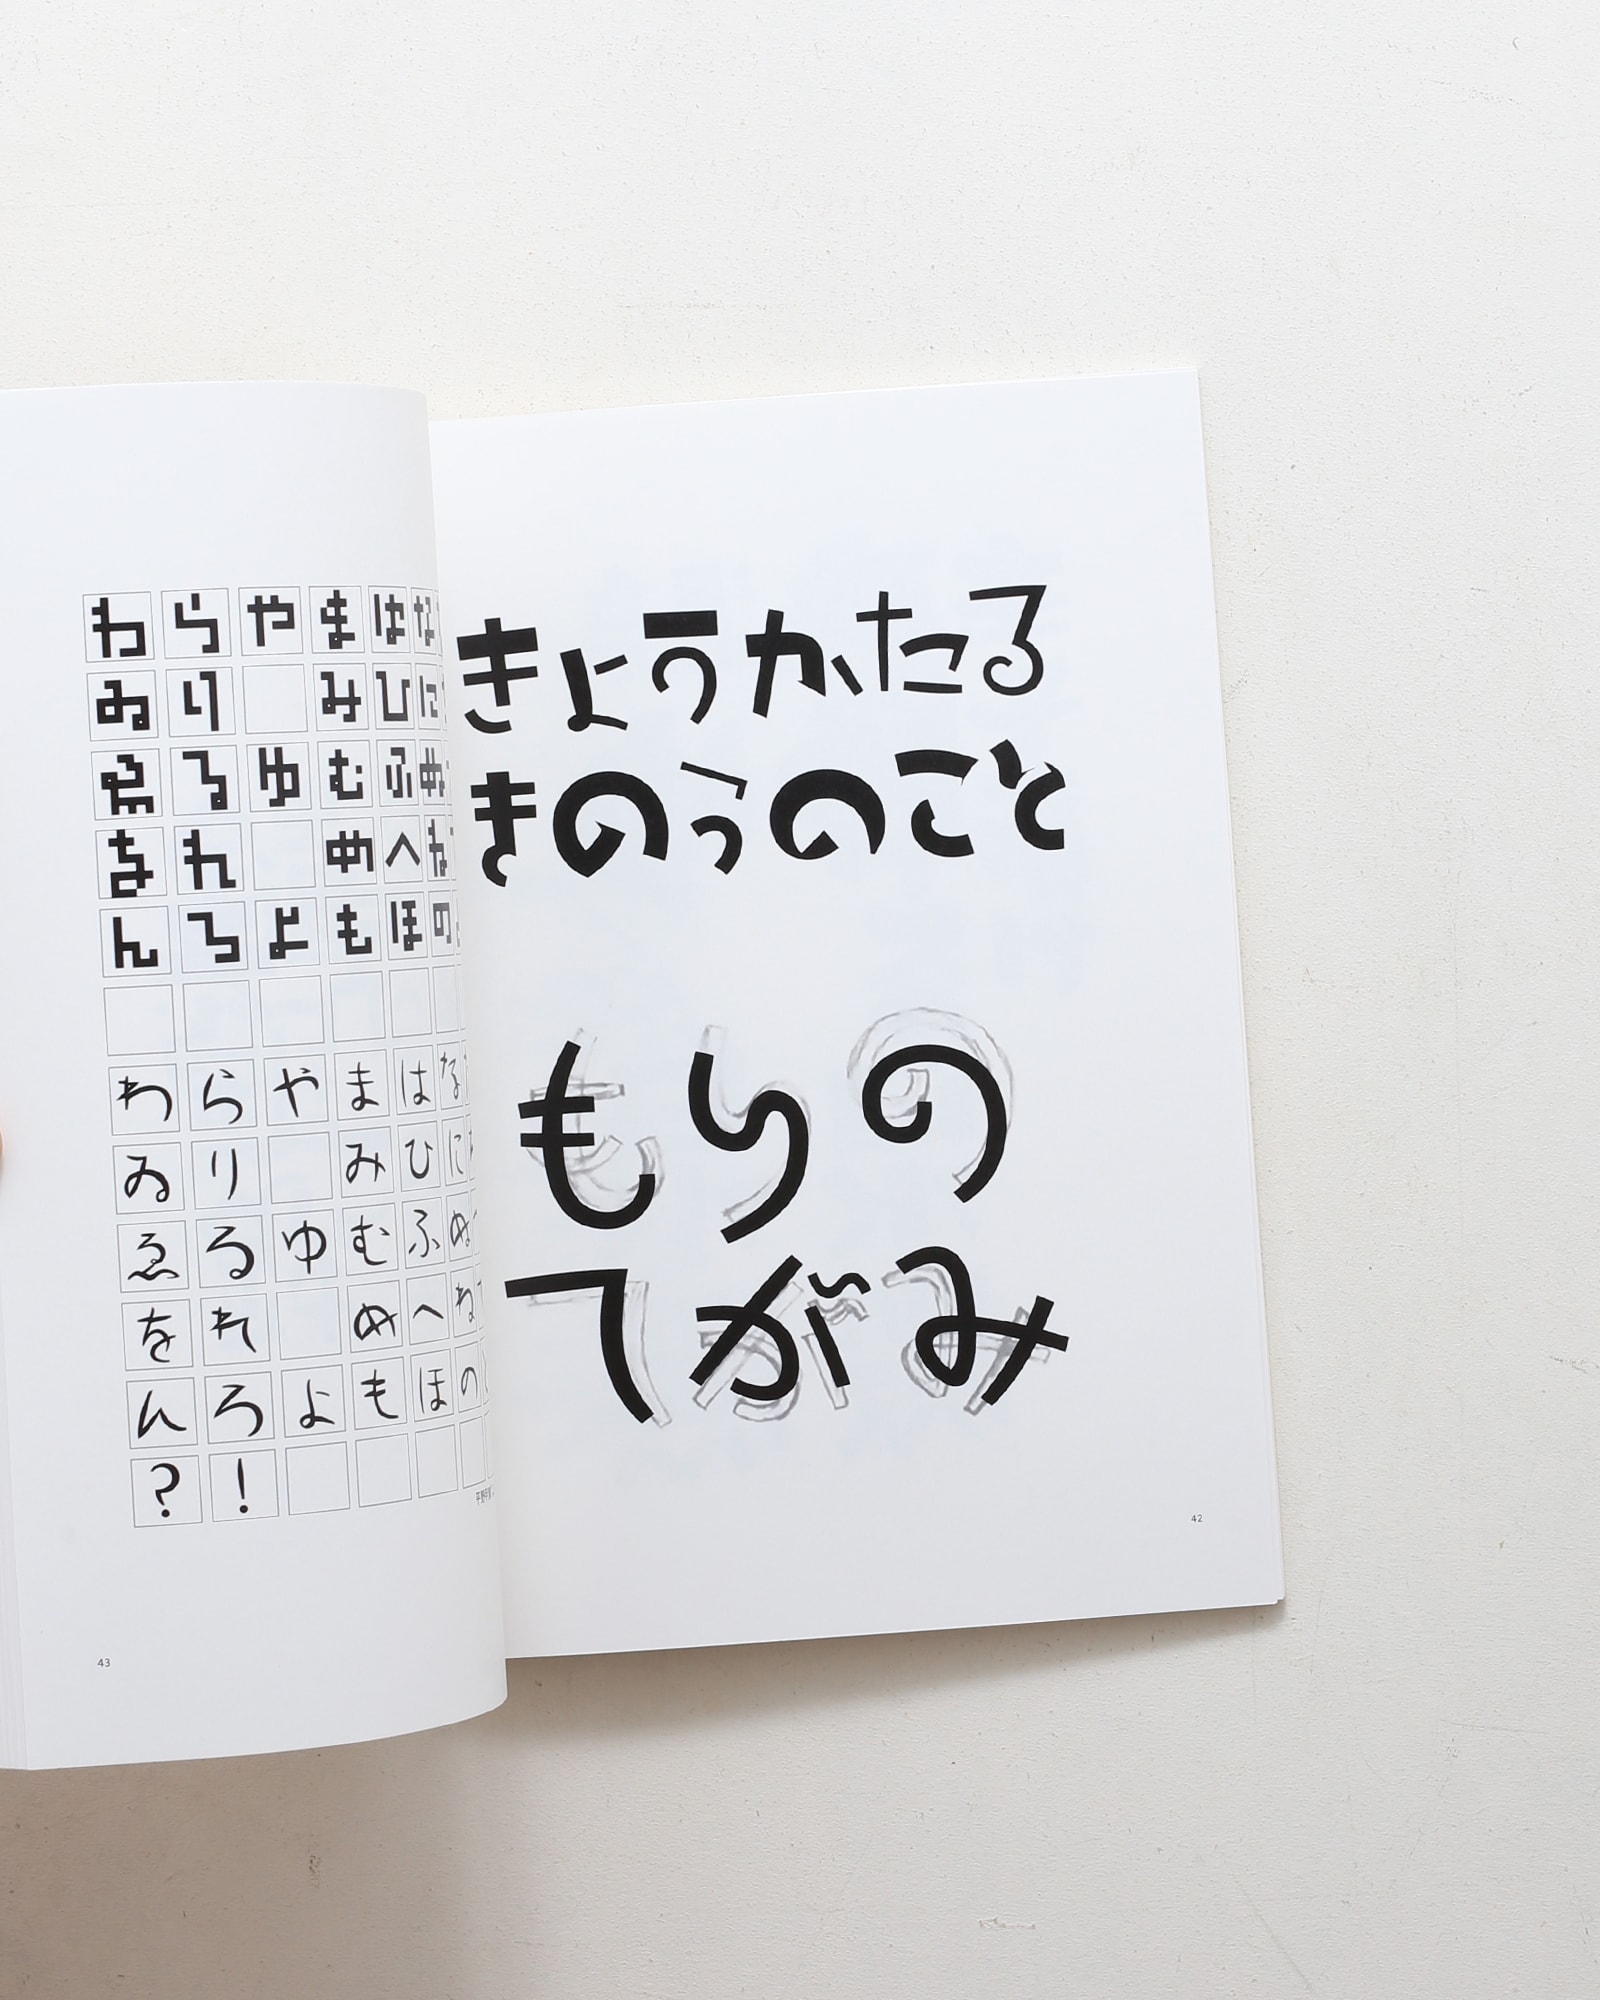 きょうかたる
きのうのこと
もりの
てがみ
42
わらやまはな
ゐりみひに
ゑるゆむふぬ
をれめへね
んろよもほの
わらやまはな
ゐりみひに
ゑるゆむふぬ
をれめへね
んろよもほの
?!
43